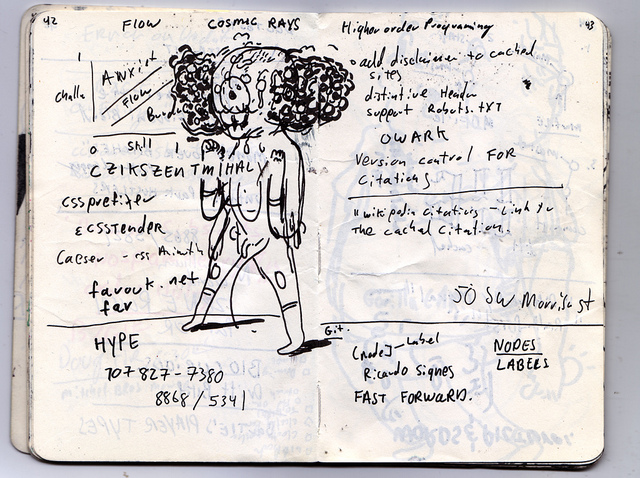 42
FLOW
COSMIC RAYS
Challe
Anxiet
FLOW
Bored
0 Skill 1
CZIKSZENTMIHALY
csspretifier
ECSSTENDER
Caeser - css
favouk.net
fav
HYPE
707 827-7380
8868/5341
43
Higher order Programing
• add disclaimer to cached
sites
distintive Header
support Robots.TXT
OWARK
Version control FOR
Citations
"wikipedia citations - Link to
The cached citation.
50 SW Morrison st
Git.
[node]-Label
Ricardo Signes
FAST FORWARD.
NODES
LABELS